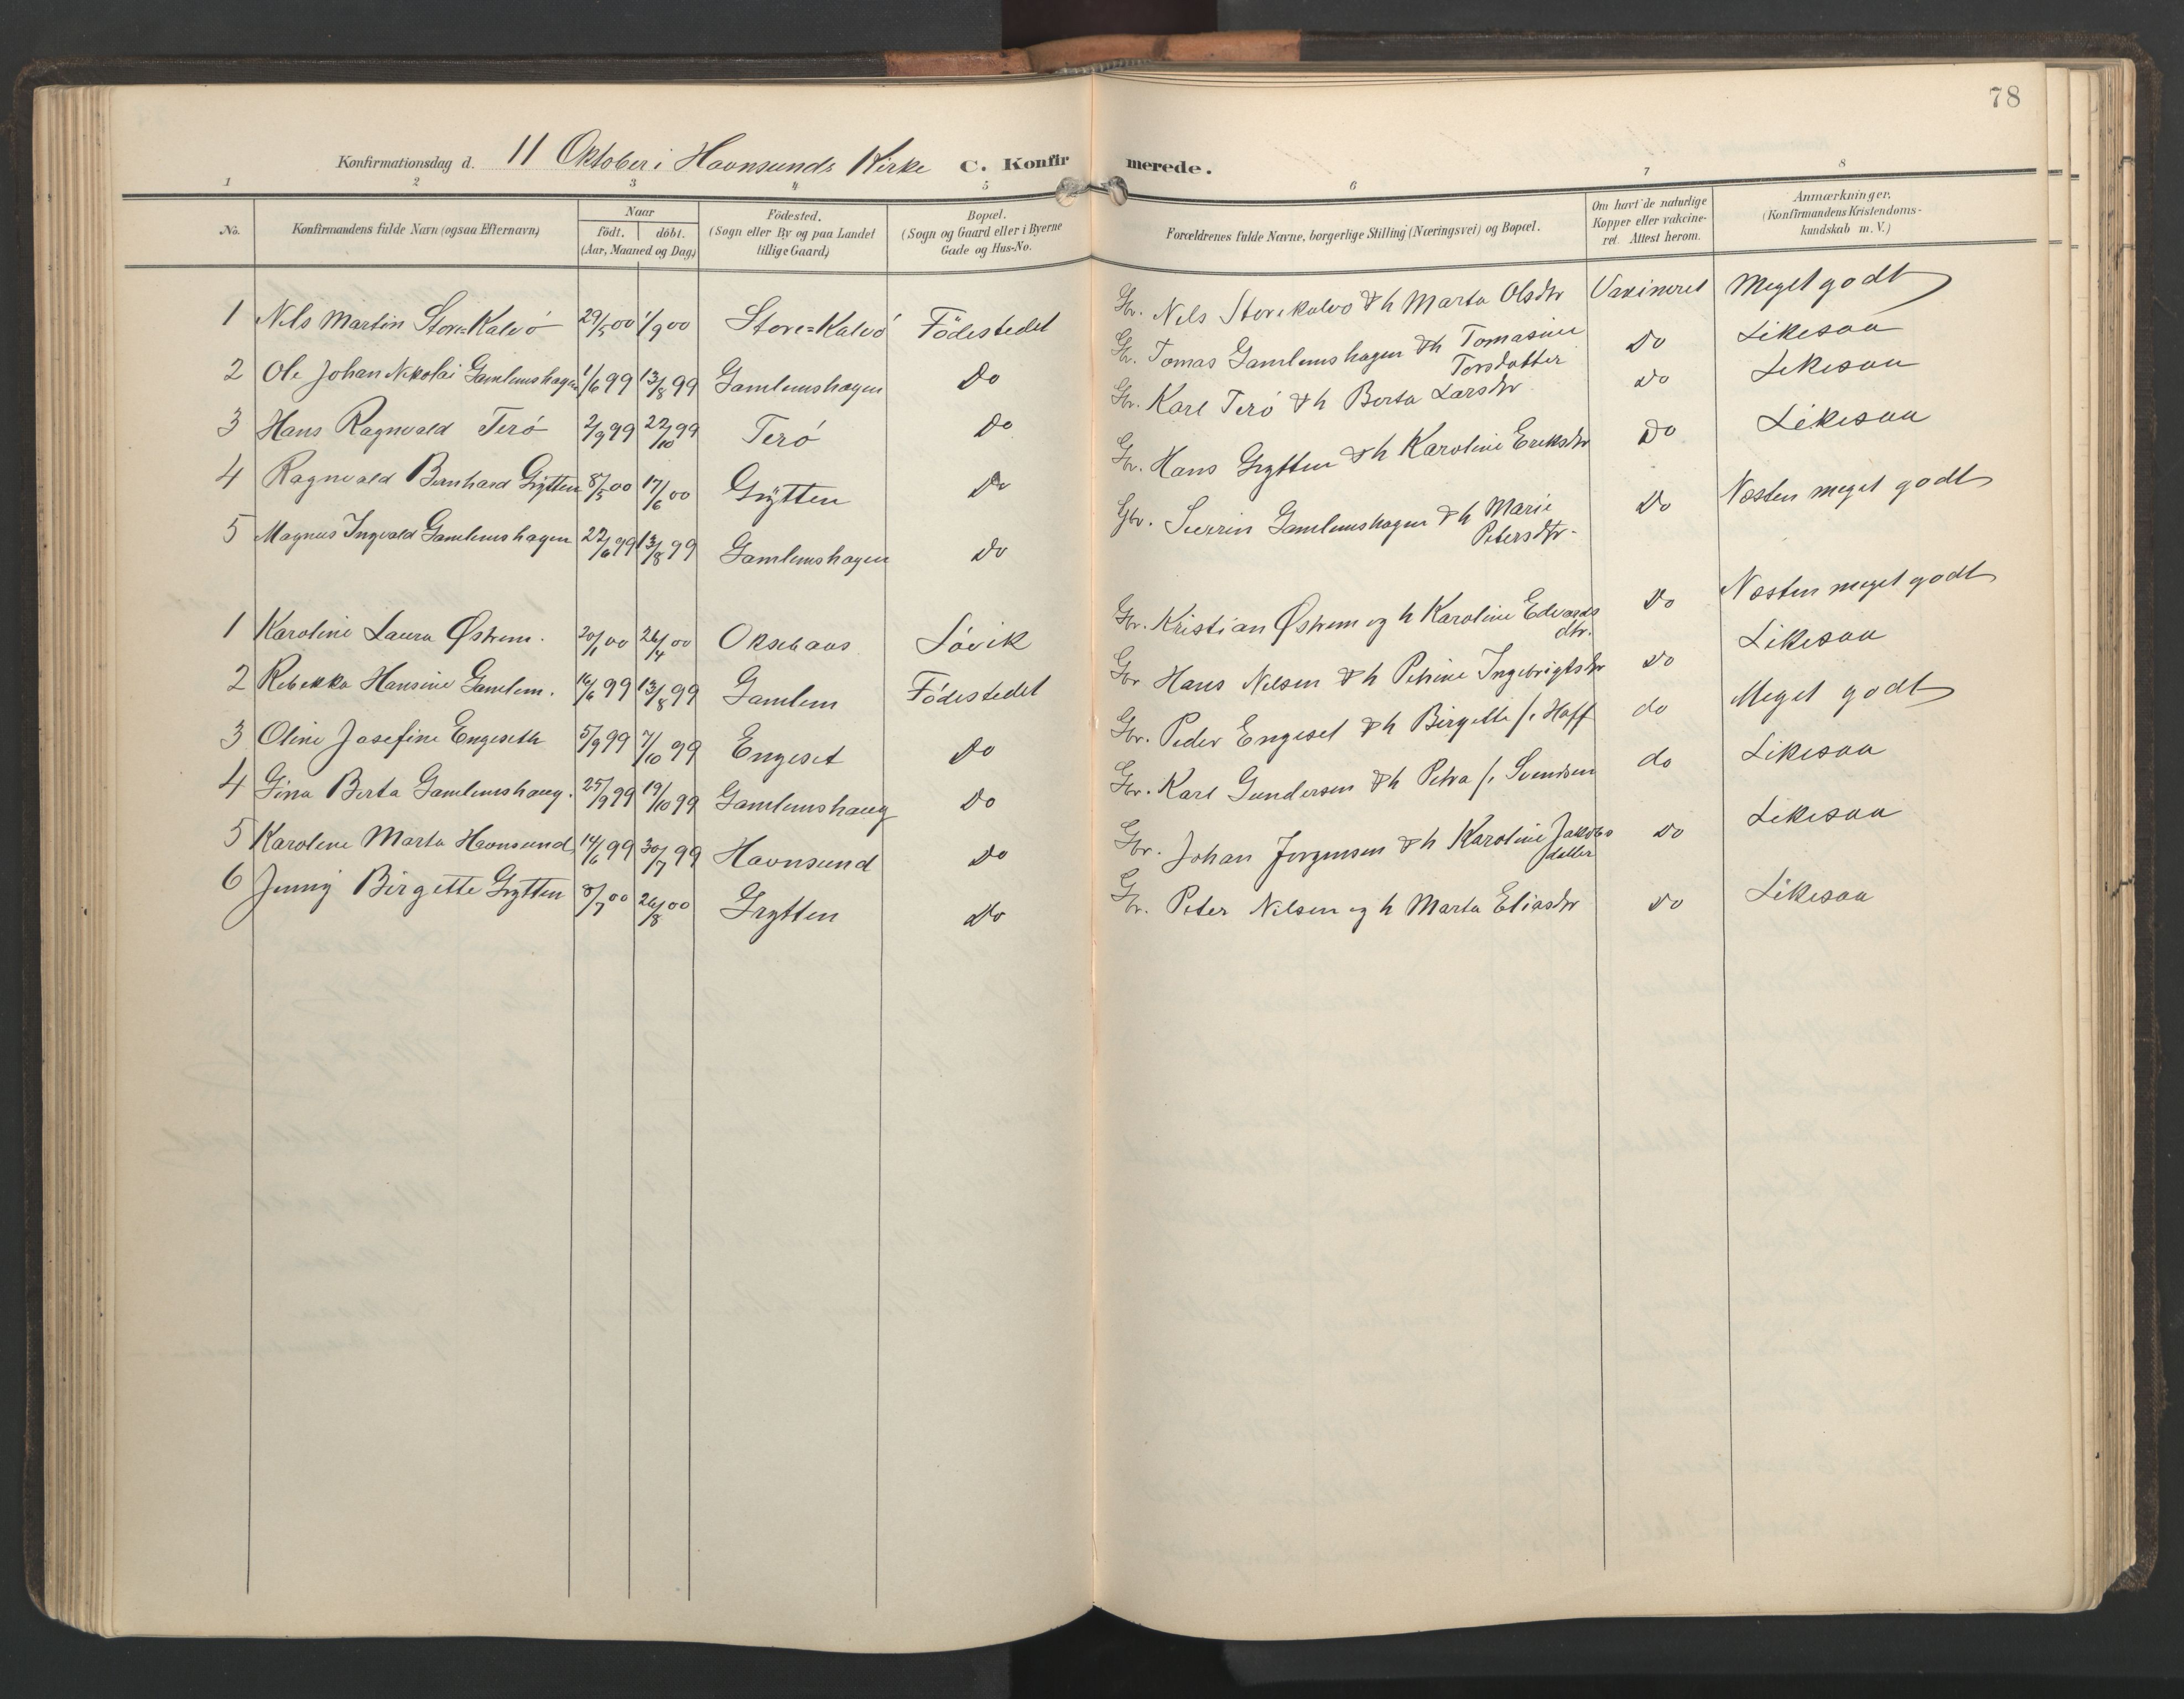 78
Konfirmationsdag d. 11 Oktober i Havnsunds Kirke C. Konfirmerede.
1 2 3 4 5 6 7 8
No. Konfirmandens fulde Navn (ogsaa Efternavn) Naar født. døbt. (Aar, Maaned og Dag) Fødested. (Sogn eller By og paa Landet tillige Gaard) Bopæl. (Sogn og Gaard eller i Byerne Gade og Hus-No. Forældrenes fulde Navne, borgerlige Stilling (Næringsvei) og Bopæl. Om havt de naturlige Kopper eller vakcineret. Attest herom. Anmærkninger. (Konfirmandens Kristendomskundskab m. V.)
1 Nils Martin Store=Kalvö 29/5 00 1/9 00 Store=Kalvö Födestedet Gbr. Nils Storekalvö & h Marta Olsdtr Vaxineret Meget godt
2 Ole Johan Nikolai Gamlemshagen 1/6 99 13/8 99 Gamlemshagen Do Gbr. Tomas Gamlemshagen & h Tomasine Torsdatter Do Likesaa
3 Hans Ragnvald Terö 2/9 99 22/10 99 Terö Do Gbr. Karl Terö & h Berta Larsdtr Do Likesaa
4 Ragnvald Bernhard Grytten 8/5 00 17/6 00 Grytten Do Gbr. Hans Grytten & h Karoline Eriksdtr Do Likesaa
5 Magnus Ingvald Gamlemshagen 22/6 99 13/8 99 Gamlemshagen Do Gbr. Severin Gamlemshagen & h Marie Petersdtr. Do Næsten meget godt
1 Karoline Laura Østrem. 20/1 00 26/4 00 Oksebaas Lövik Gbr. Kristian Østrem og h Karoline Edvards dtr. Do Næsten meget godt
2 Rebekka Hansine Gamlem. 16/6 99 13/8 99 Gamlem Födestedet Gbr Hans Nilsen & h Petrine Ingebrigtsdtr Do Likesaa
3 Oline Josefine Engeseth 5/9 99 7/10 99 Engeset Do Gbr. Peder Engeset & h Birgitte f. Hoff do Meget godt
4 Gina Berta Gamlemshaug. 25/9 99 19/10 99 Gamlemshaug Do Gbr. Karl Gundersen & h Petra f. Svendsen do Likesaa
5 Karoline Marta Havnsund 14/6 99 30/7 99 Havnsund Do Gbr. Johan Jörgensen & h Karoline Jakobs datter Do Likesaa
6 Jenny Birgette Grytten 8/7 00 26/8 00 Grytten Do Gbr. Peter Nilsen og h Marta Eliasdtr Do Likesaa